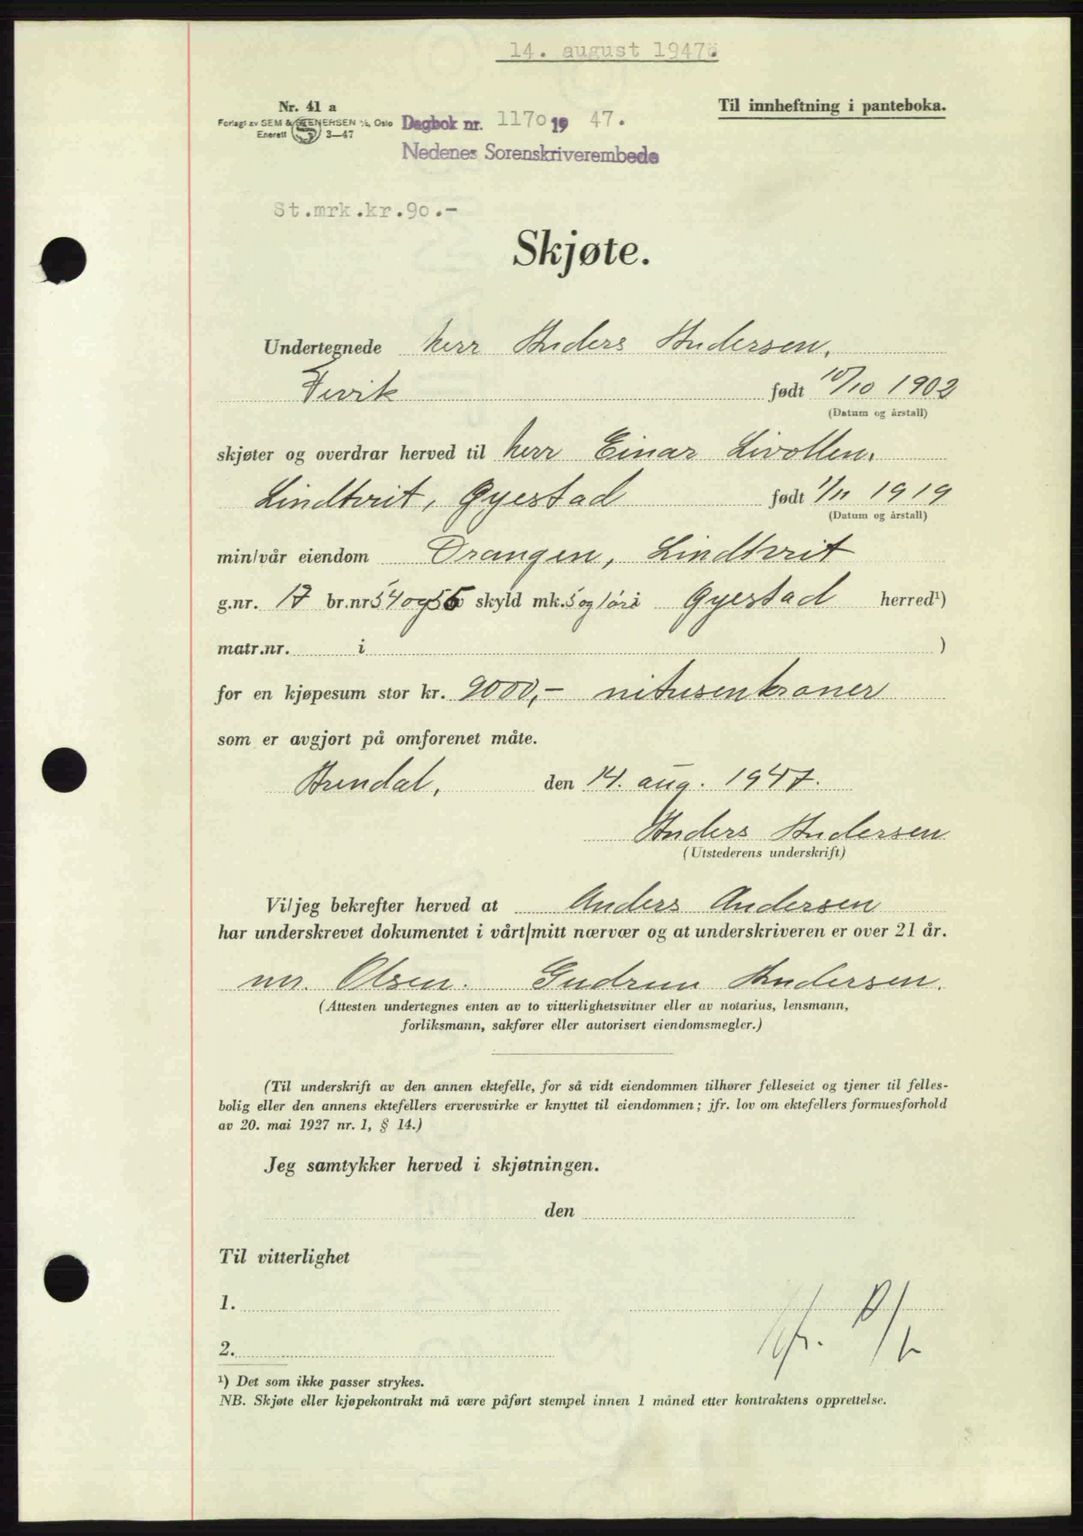 14. august 1947
Til innheftning i panteboka.
Nr. 41 a
Forlagt av SEM & STENERSEN A/S, Oslo
Enerett 3—47
Dagbok nr. 1170 19 47.
Nedenes Sorenskriverembede
St.mrk.kr.90.-
Skjøte.
Undertegnede herr Anders Andersen,
Fevik født 10/10 1902
(Datum og årstall)
skjøter og overdrar herved til herr Einar Livollen,
Lindtveit, Øyestad født 1/11 1919
(Datum og årstall)
min/vår eiendom Drangen, Lindtveit
g.nr. 17 br.nr 54 og 55 av skyld mk. 5 og 1 øre i Øyestad herred¹)
matr.nr. i )
for en kjøpesum stor kr. 9000,- nitusenkroner
som er avgjort på omforenet måte.
Arendal, den 14. aug. 1947.
Anders Andersen
(Utstederens underskrift)
Vi/jeg bekrefter herved at Anders Andersen
har underskrevet dokumentet i vårt/mitt nærvær og at underskriveren er over 21 år.
Olsen. Gudrun Andersen.
(Attesten undertegnes enten av to vitterlighetsvitner eller av notarius, lensmann,
forliksmann, sakfører eller autorisert eiendomsmegler.)
(Til underskrift av den annen ektefelle, for så vidt eiendommen tilhører felleseiet og tjener til felles-
bolig eller den annens ektefellers ervervsvirke er knyttet til eiendommen; jfr. lov om ektefellers formuesforhold
av 20. mai 1927 nr. 1, § 14.)
Jeg samtykker herved i skjøtningen.
den
Til vitterlighet
1.
2.
¹) Det som ikke passer strykes.
NB. Skjøte eller kjøpekontrakt må være påført stempel innen 1 måned etter kontraktens opprettelse.